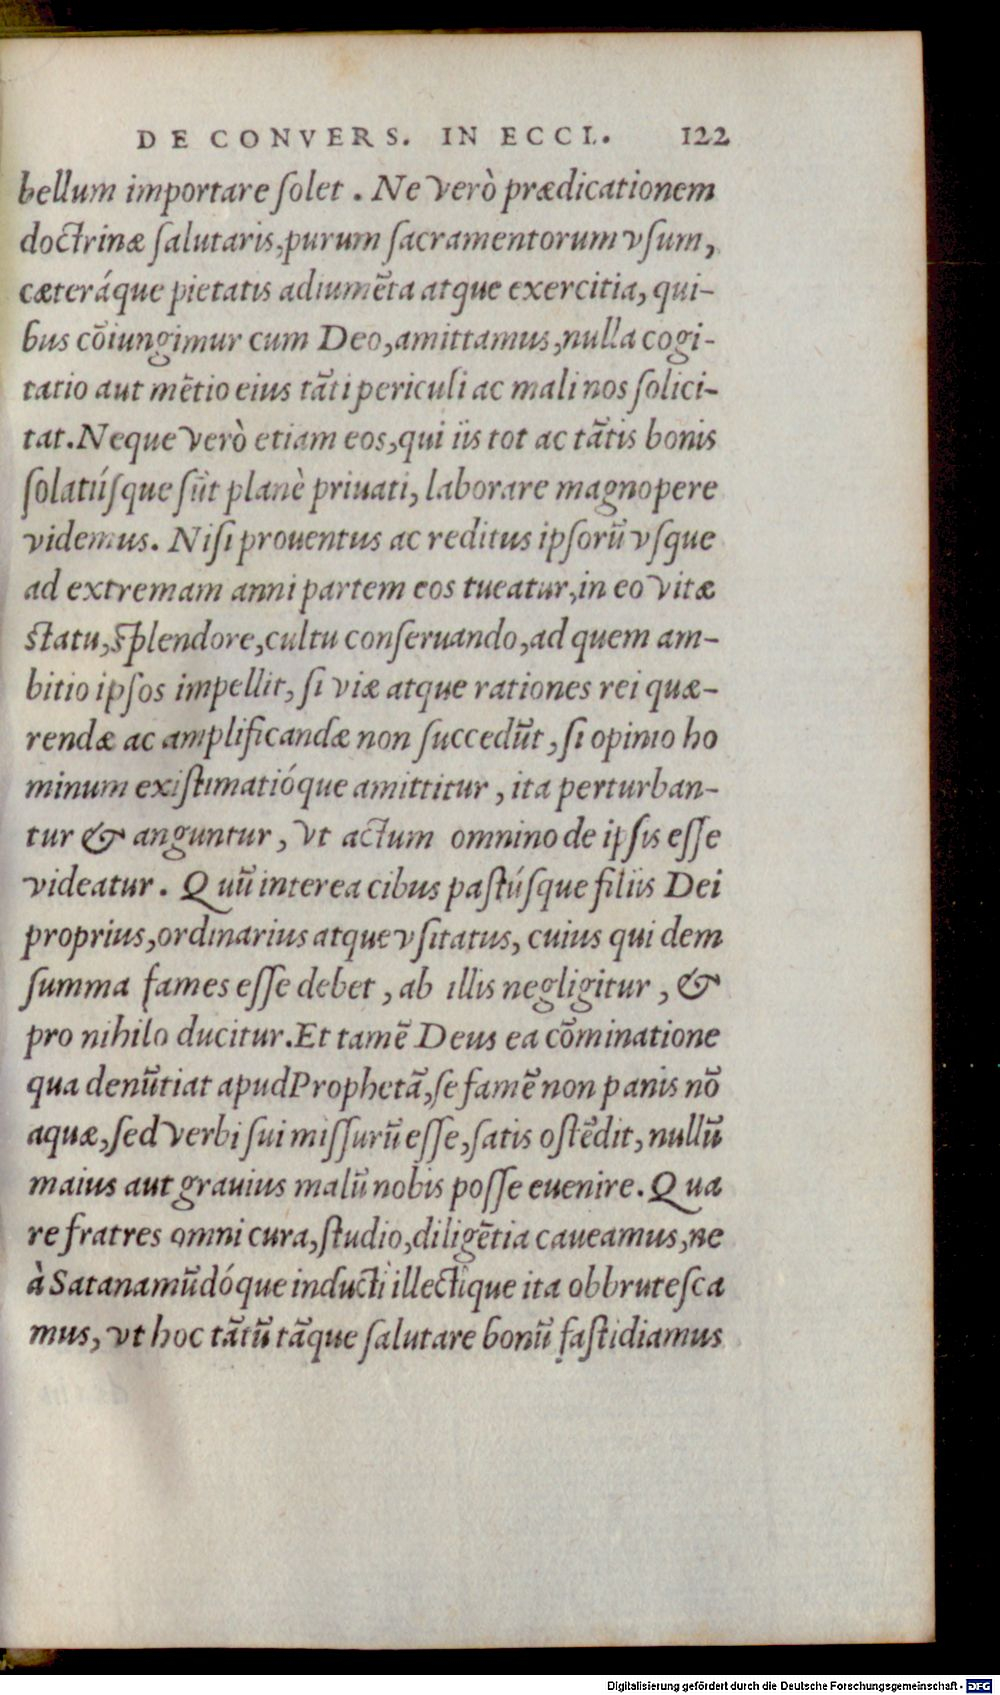 DE CONVERS. IN ECCL. 122
bellum importare ſolet . Ne verò prædicationem
doctrinæ ſalutaris, purum ſacramentorum vſum,
cæteráque pietatis adiumēta atque exercitia, qui-
bus cōiungimur cum Deo, amittamus, nulla cogi-
tatio aut mētio eius tāti periculi ac mali nos ſolici-
tat. Neque verò etiam eos, qui iis tot ac tātis bonis
ſolatiíſque ſūt planè priuati, laborare magnopere
videmus. Niſi prouentus ac reditus ipſorū vſque
ad extremam anni partem eos tueatur, in eo vitæ
ſtatu, ſplendore, cultu conſeruando, ad quem am-
bitio ipſos impellit, ſi viæ atque rationes rei quæ-
rendæ ac amplificandæ non ſuccedūt, ſi opinio ho
minum exiſtimatióque amittitur, ita perturban-
tur & anguntur, vt actum omnino de ipſis eſſe
videatur. Quū interea cibus paſtúſque filiis Dei
proprius, ordinarius atque vſitatus, cuius qui dem
ſumma fames eſſe debet, ab illis negligitur, &
pro nihilo ducitur. Et tamē Deus ea cōminatione
qua denūtiat apud Prophetā, ſe famē non panis nō
aquæ, ſed verbi ſui miſſurū eſſe, ſatis oſtēdit, nullū
maius aut grauius malū nobis poſſe euenire. Qua
re fratres omni cura, ſtudio, diligētia caueamus, ne
à Satana mūdóque inducti illectíque ita obbruteſca
mus, vt hoc tātū tāque ſalutare bonū faſtidiamus
Digitalisierung gefördert durch die Deutsche Forschungsgemeinschaft - DFG